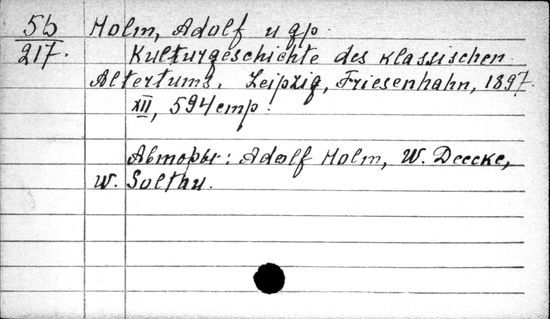 5b Holm, Adolf и др.
217. Kulturgeschichte des klassischen
Altertums. Leipzig, Friesenhahn, 1897.
XII, 594 стр.
Авторы: Adolf Holm, W. Deecke,
W. Soltau.